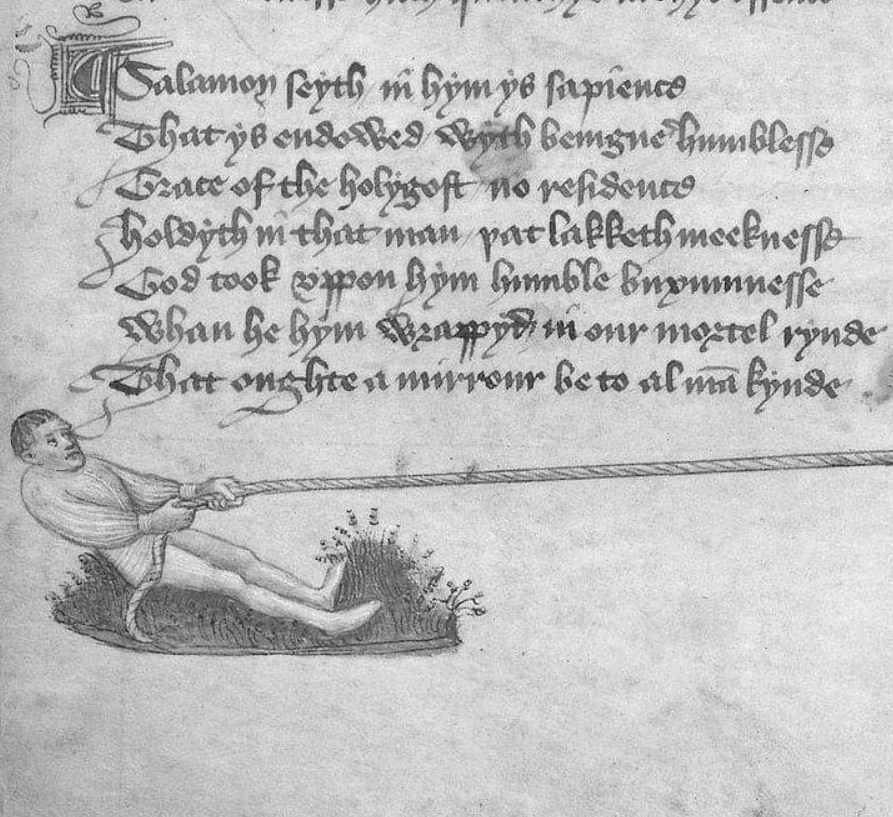 Salamon seyth in hym ys sapience
That ys endowed wyth benigne humblesse
Grace of the holygost no residence
Holdyth in that man þat lakketh meeknesse
God took vppon hym humble buxumnesse
Whan he hym wrappyd in our mortel rynde
That oughte a mirrour be to al mākynde